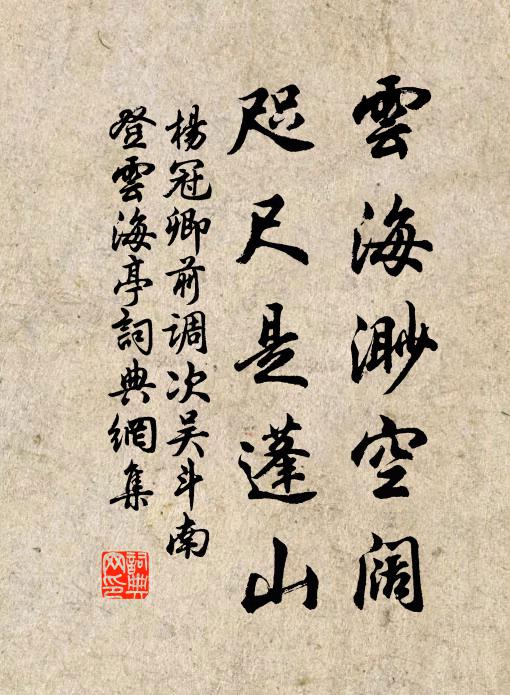 雲海渺空阔
咫尺是蓬山
楊冠卿前调次吴斗南
登雲海亭詞典網集
詞典
网印